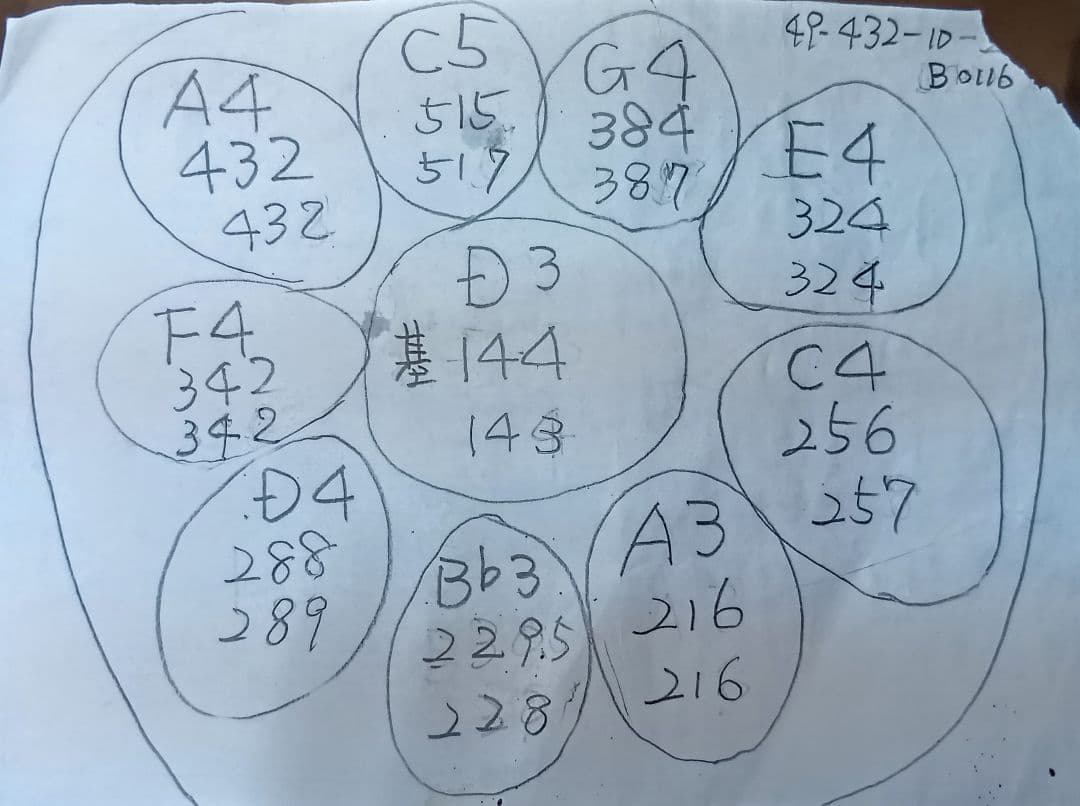 49-432-10-
B0116
A4
432
432
C5
515
517
G4
384
387
E4
324
324
D3
基 144
143
F4
342
342
C4
256
257
D4
288
289
Bb3
229.5
228
A3
216
216